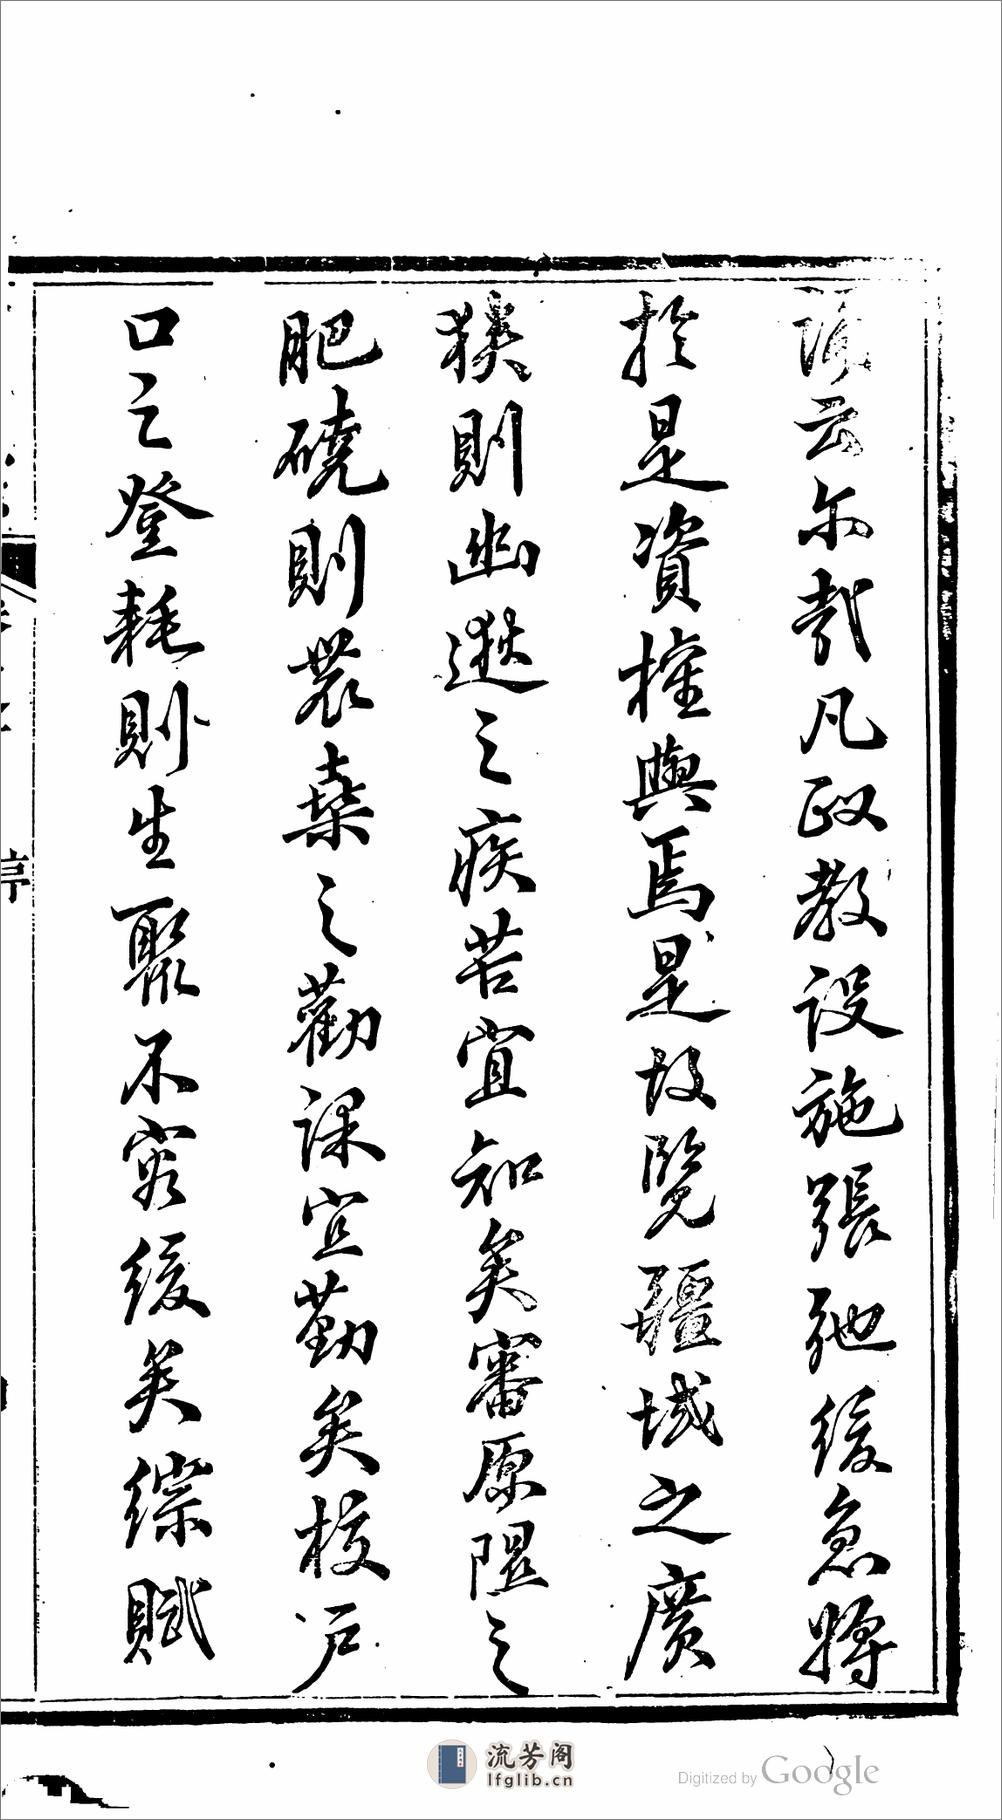 云尔哉凡政教設施張弛緩急將
於是資權輿焉是故覽疆域之廣
狹則幽遐之疾苦宜知矣審原隰之
肥磽則農桑之勸課宜勤矣校戶
口之登耗則生聚不容緩矣綜賦
序
流芳阁
lfglib.cn
Digitized by Google